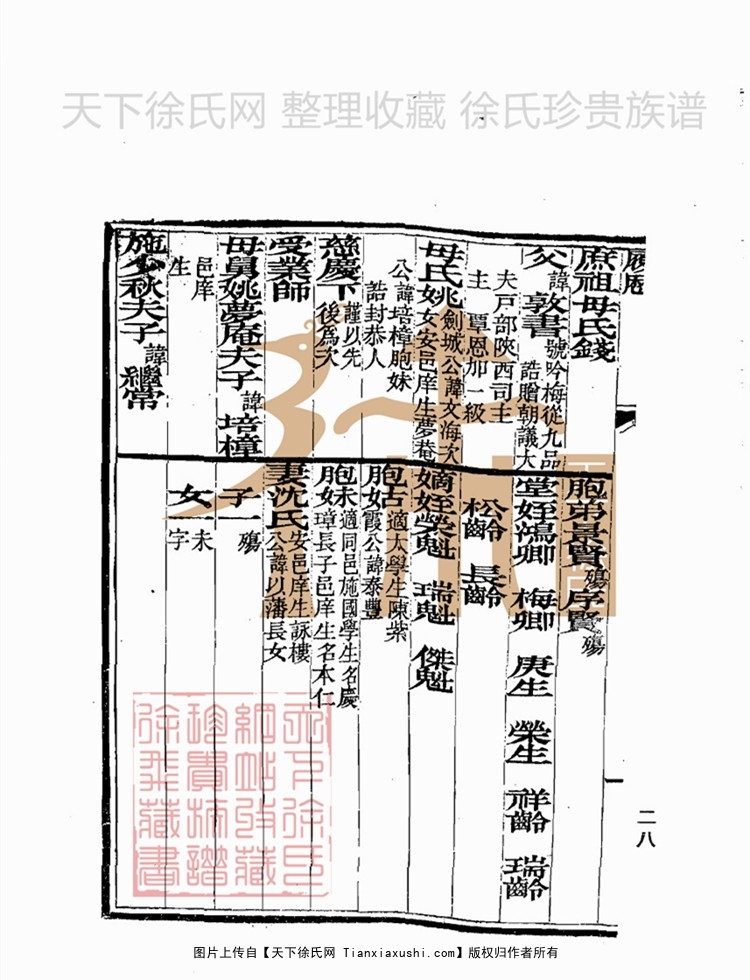 天下徐氏网 整理收藏 徐氏珍贵族谱
履歷
庶祖母氏錢
父 諱敦書 號吟梅從九品誥贈朝議大
夫戶部陝西司主
主 覃恩加一級
母氏姚 劍城公諱文海次女安邑庠生夢菴
公諱培樟胞妹
誥封恭人
慈慶下 謹以先後為次
受業師
母舅姚夢庵夫子 諱培樟
邑庠
生
施少秋夫子 諱繼常
胞弟景賢 殤 序賢 殤
堂姪鴻卿 梅卿 庚生 榮生 祥齡 瑞齡
松齡 長齡
嫡姪榮魁 瑞魁 傑魁
胞姑 適太學生陳紫霞公諱泰豐
胞妹 適同邑施國學生名慶璋長子邑庠生名本仁
妻沈氏 安邑庠生詠樓公諱以藩長女
子一 殤
女一 未字
二八
天下徐氏
網站收藏
珍貴族譜
徐氏藏書
图片上传自【天下徐氏网 Tianxiaxushi.com】版权归作者所有